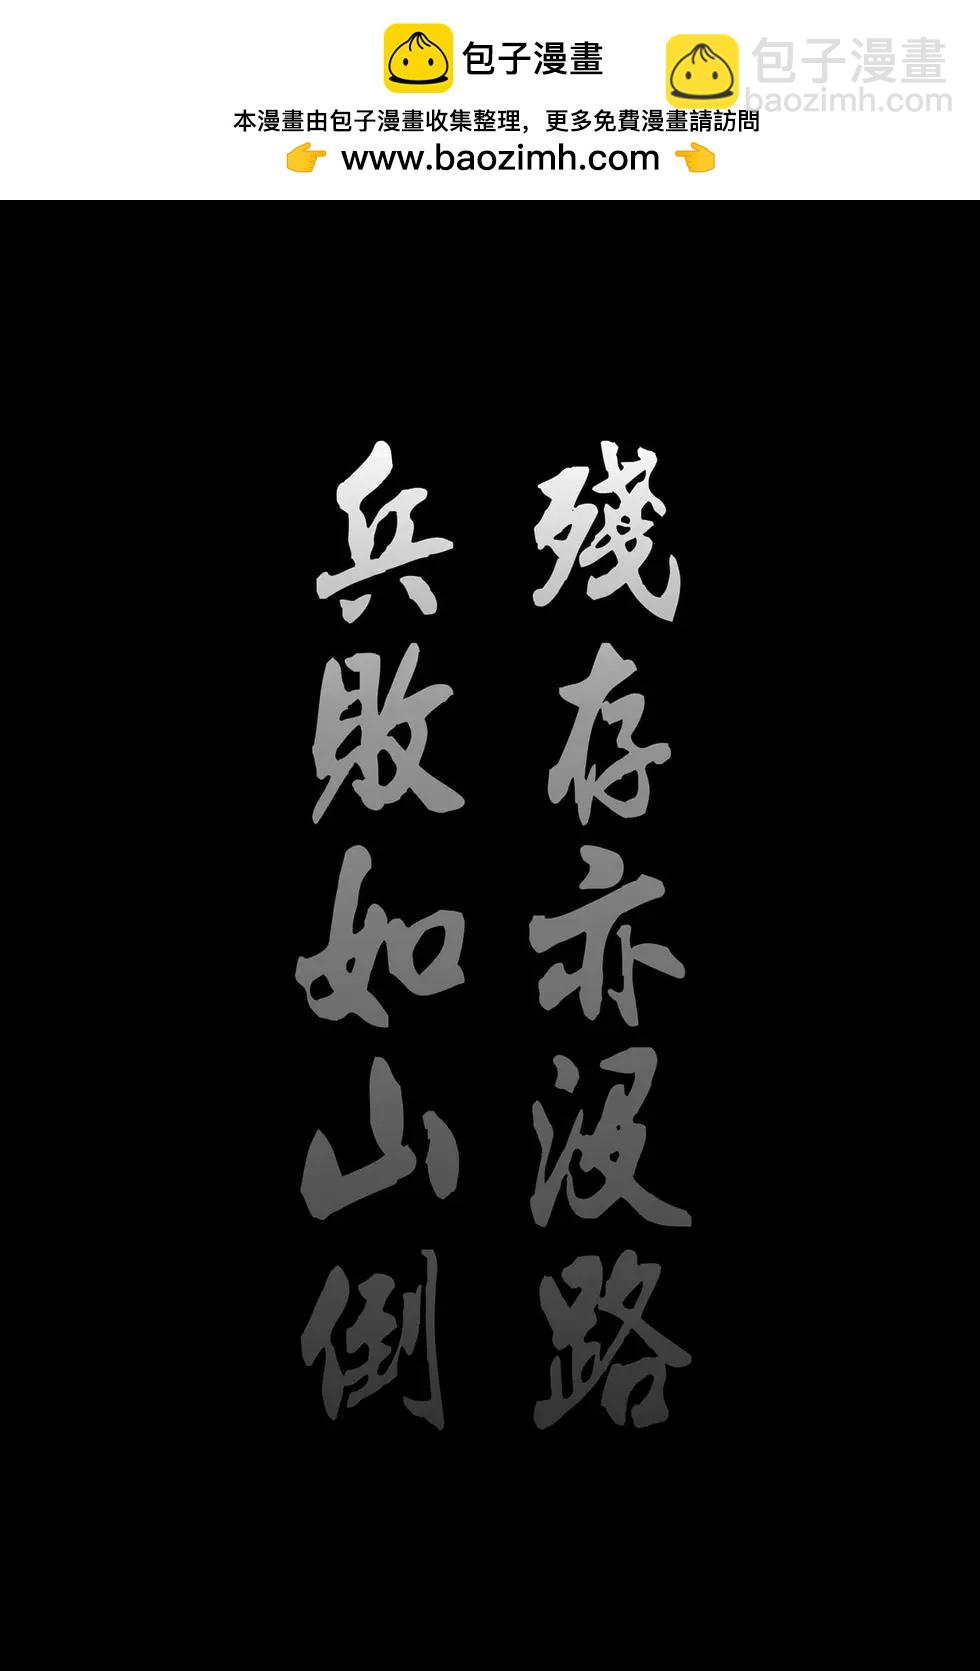 包子漫畫
包子漫畫
baozimh.com
本漫畫由包子漫畫收集整理，更多免費漫畫請訪問
👉 www.baozimh.com 👈
殘存亦沒路
兵敗如山倒